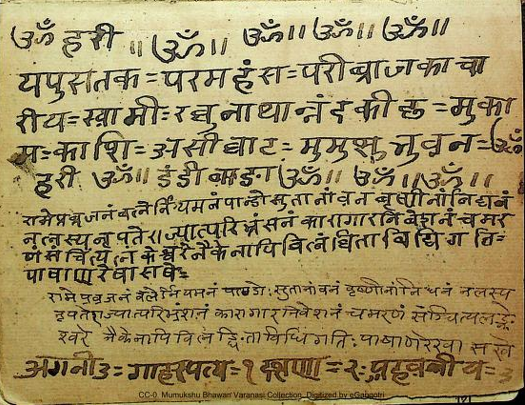 ॐ हरी ॥ ॐ ॥ ॐ ॥ ॐ ॥ ॐ ॥
यपुसतक = परमहंस = परीब्राजकाचा
रीय = स्वामी : रघुनाथान्नंद की छ = मुका
म : काशि = असीघाट = मुमुक्षु भुवन = ॐ
हरी ॐ ॥ डंडी बाडा ॐ ॥ ॐ ॥ ॐ ॥
रामे प्रब्रजनं वलेर्नियमनं पान्डो सुतानांवन बृष्णीनांनिधनं
नलस्य नृपते राज्यात्परिभ्रंसनं कारागारनिवेशनं चमर
णं संचिंत्य
पाषाणरेखा
रामे प्रब्रजनं वलेर्नियमनं पाण्डो : सुतानांवनं वृष्णीनांनिधनं नलस्य
नृपतेराज्यात्परिभ्रशनं कारागारनिवेशनं चमरणं संचिंत्यलङ्के
विधिगतिः पाषाणरेखा
अगनी ३ = गाहस्पत्य = १ दक्षणा = २ :
CC-0. Mumukshu Bhawan Varanasi Collection. Digitized by eGangotri